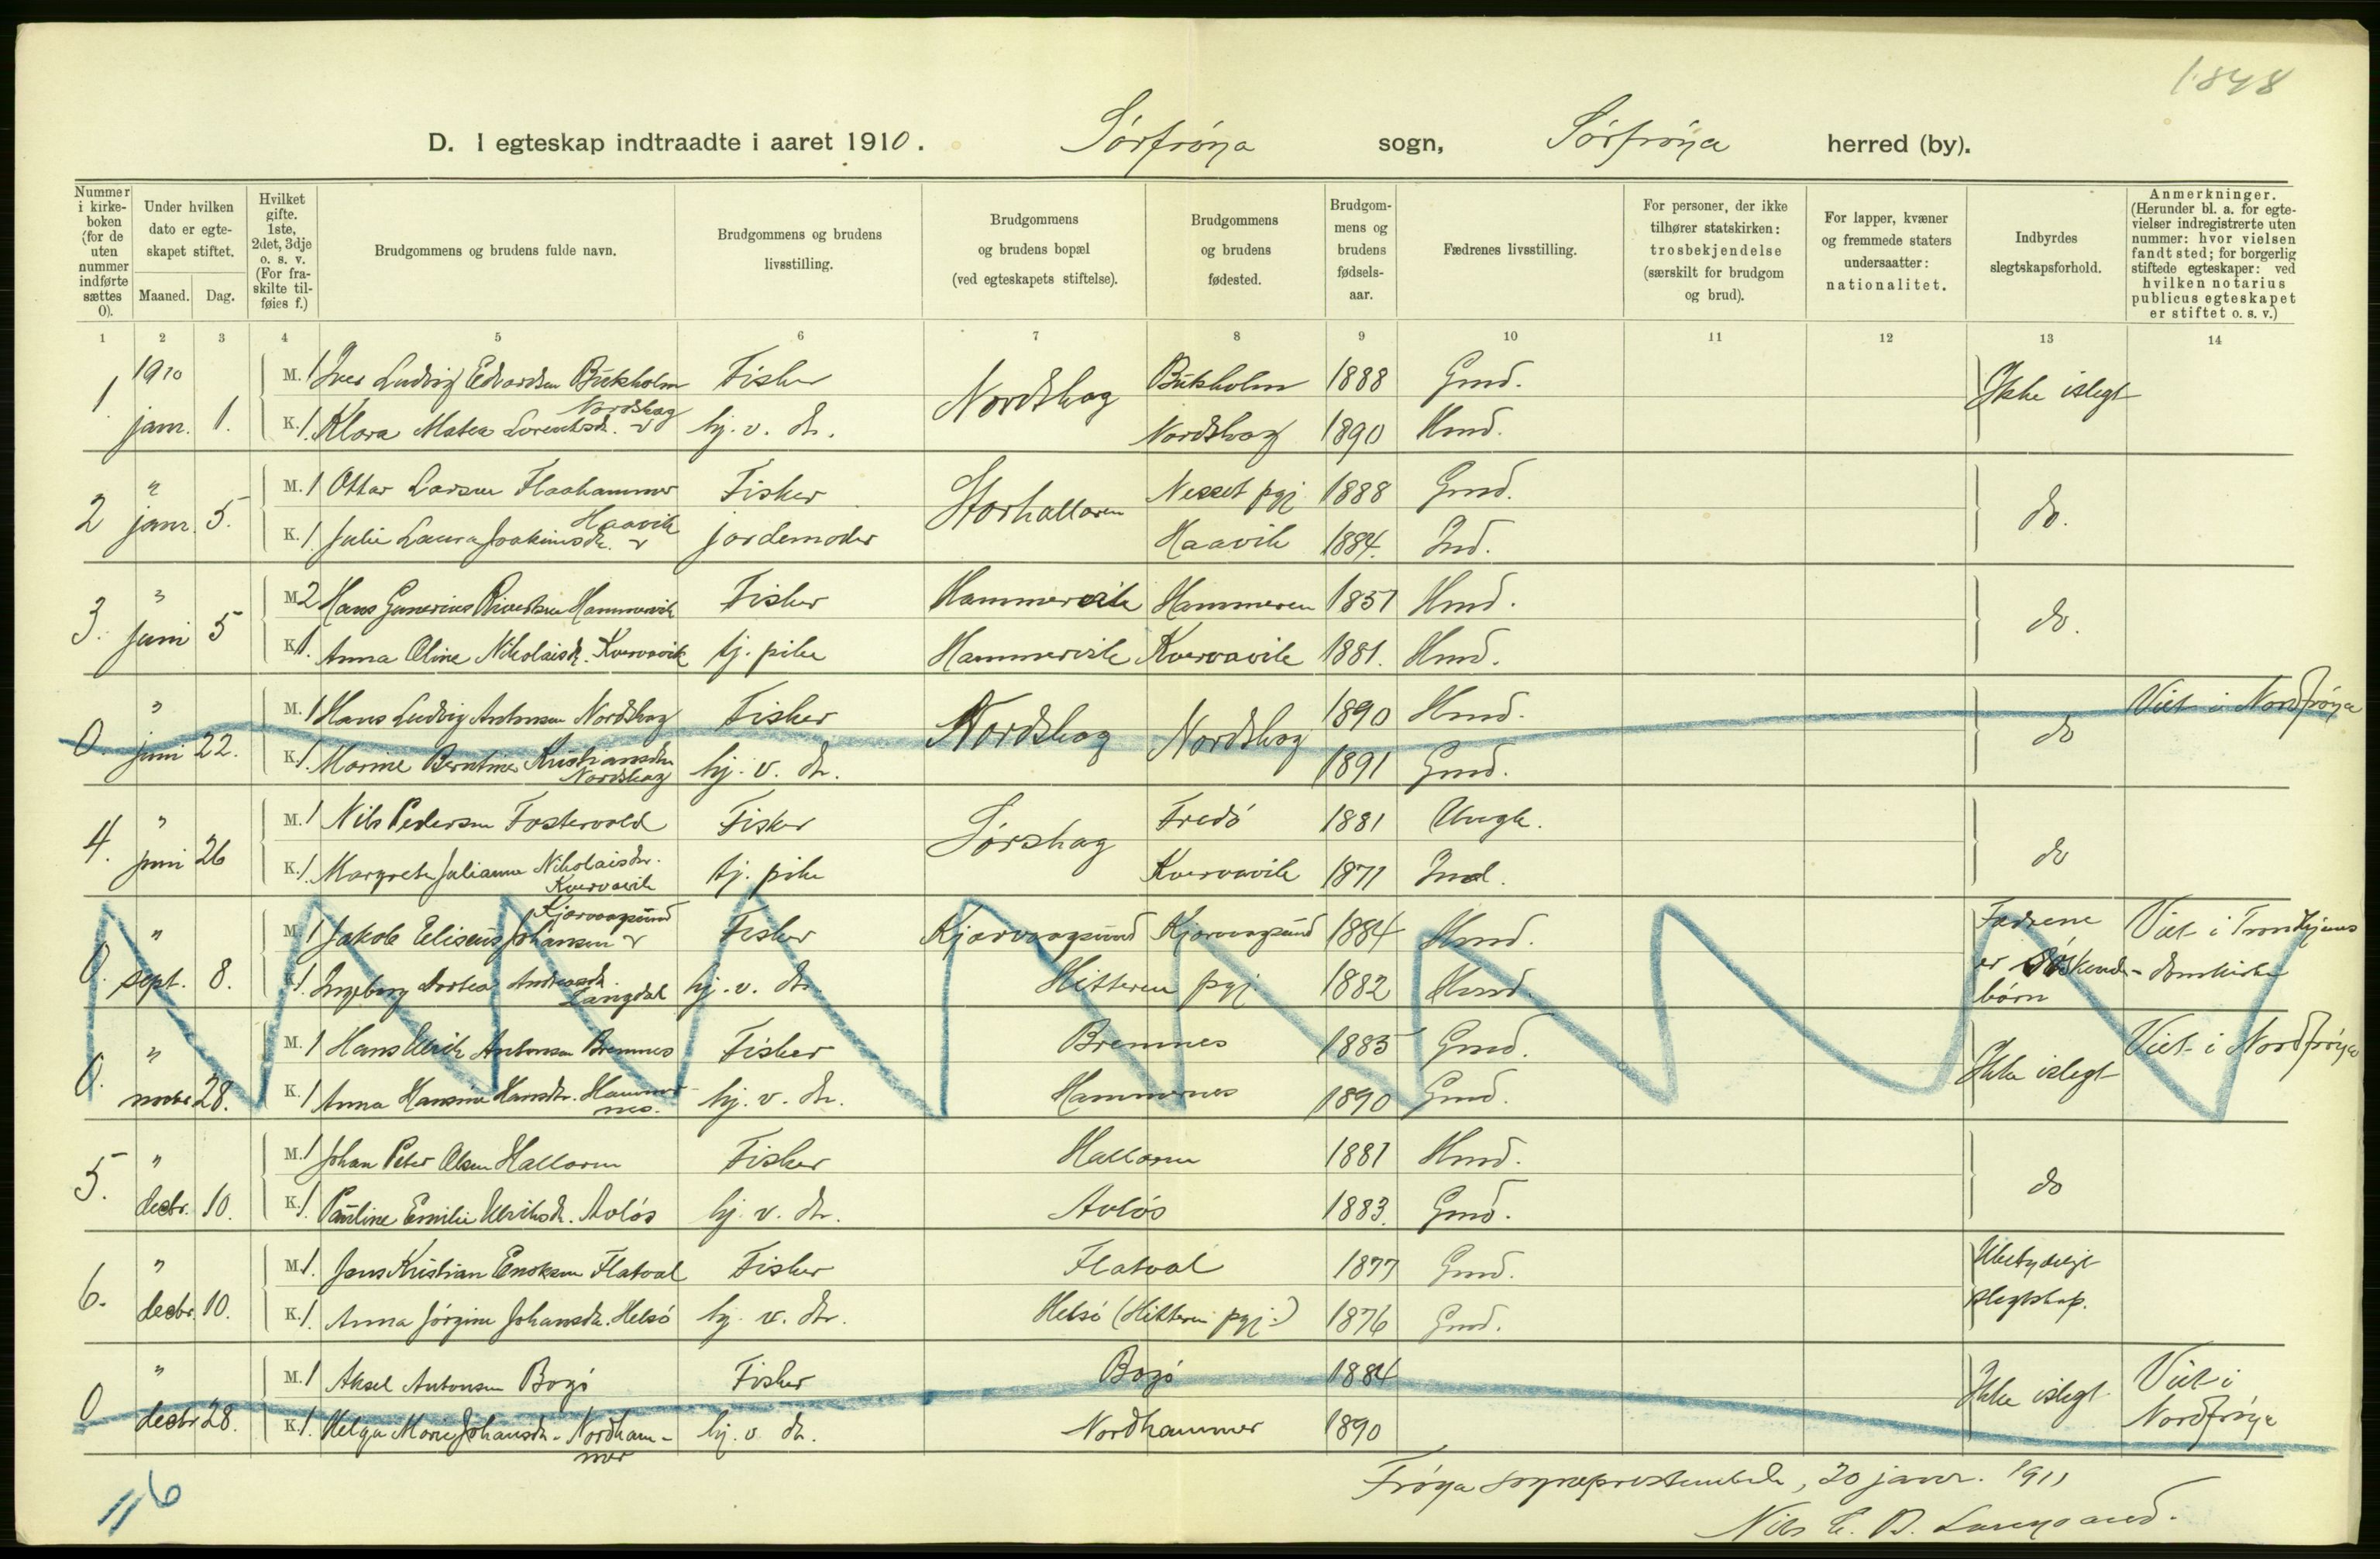 1848
D. I egteskap indtraadte i aaret 1910. Sørfrøya sogn, Sørfrøya herred (by).
Nummer i kirke-boken (for de uten nummer indførte sættes 0).
Under hvilken dato er egte-skapet stiftet.
Maaned. Dag.
Hvilket gifte. 1ste, 2det, 3dje o. s. v. (For fra-skilte til-føies f.)
Brudgommens og brudens fulde navn.
Brudgommens og brudens livsstilling.
Brudgommens og brudens bopæl (ved egteskapets stiftelse).
Brudgommens og brudens fødested.
Brudgom-mens og brudens fødsels-aar.
Fædrenes livsstilling.
For personer, der ikke tilhører statskirken: trosbekjendelse (særskilt for brudgom og brud).
For lapper, kvæner og fremmede staters undersaatter: nationalitet.
Indbyrdes slegtskapsforhold.
Anmerkninger. (Herunder bl. a. for egte-vielser indregistrerte uten nummer: hvor vielsen fandt sted; for borgerlig stiftede egteskaper: ved hvilken notarius publicus egteskapet er stiftet o. s. v.)
1 2 3 4 5 6 7 8 9 10 11 12 13 14
1910
1 janr. 1. M. 1 Iver Ludvig Edvardsen Bukholm Fisker Nordskag Bukholm 1888 Gmd. Ikke islegt
K. 1. Klara Matea Lorentsdr. Nordskag hj. v. dr. Nordskag 1890 Hmd.
2 " janr. 5. M. 1 Ottar Larsen Flaahammer Fisker Storhallaren Nesset pgj 1888 Gmd. do.
K. 1. Julie Laura Joakimsdr. Haavik jordemoder Haavik 1884. Ind.
3. " juni 5 M. 2 Hans Gunerius Hammervik Fisker Hammervik Hammeren 1857 Hmd. do.
K. 1. Anna Oline Nikolaisdr. Kvervavik tj. pike Hammervik Kvervavik 1881. Hmd.
0. " juni 22. M. 1 Hans Ludvig Antonsen Nordskag Fisker Nordskag Nordskag 1890 Hmd. do Viet i Nordfrøya
K. 1. Marine Berntine Kristiansdtr Nordskag hj. v. dr. 1891 Gmd.
4. " juni 26 M. 1 Nils Pedersen Fostervold Fisker Sørskag Fredø 1881 do
K. 1. Margrete Julianne Nikolaisdr. Kvervavik tj. pike Kvervavik 1871 Ind.
0. " sept. 8. M. 1 Jakob Eliseus Johansen Kjørvaagsund Fisker Kjørvaagsund Kjørvaagsund 1884 Hmd. Fædrene er Søskende-børn Viet i Trondhjems domkirke
K. 1. Ingeborg Dortea Andreasdr. Langdal hj. v. dr. Hitteren pgj 1882 Hmd.
0. " novbr 28. M. 1 Hans Ulrik Antonsen Bremnes Fisker Bremnes 1885 Gmd. Ikke islegt Viet i Nordfrøya
K. 1 Anna Hansine Hansdr. Hammernes. hj. v. dr. Hammernes 1890 Gmd.
5. " decbr. 10. M. 1 Johan Peter Olsen Hallaren Fisker Hallaren 1881 Hmd. do
K. 1 Pauline Emilie Ulriksdr. Avløs hj. v. dr. Avløs 1883. Gmd.
6. " decbr. 10. M. 1. Jens Kristian Enoksen Flatval Fisker Flatval 1877 Gmd. Ubetydeligt slegtskap.
K. 1. Anna Jørgine Johansdr. Helsø hj. v. dr. Helsø (Hitteren pgj.) 1876 Gmd.
0 " decbr 28. M. 1 Aksel Antonsen Bogø Fisker Bogø 1884 Ikke islegt Viet i Nordfrøya
K. 1. Helga Marie Johansdr. Nordham-mer hj. v. dr. Nordhammer 1890
6
Frøya sogneprestembede, 20 janr. 1911